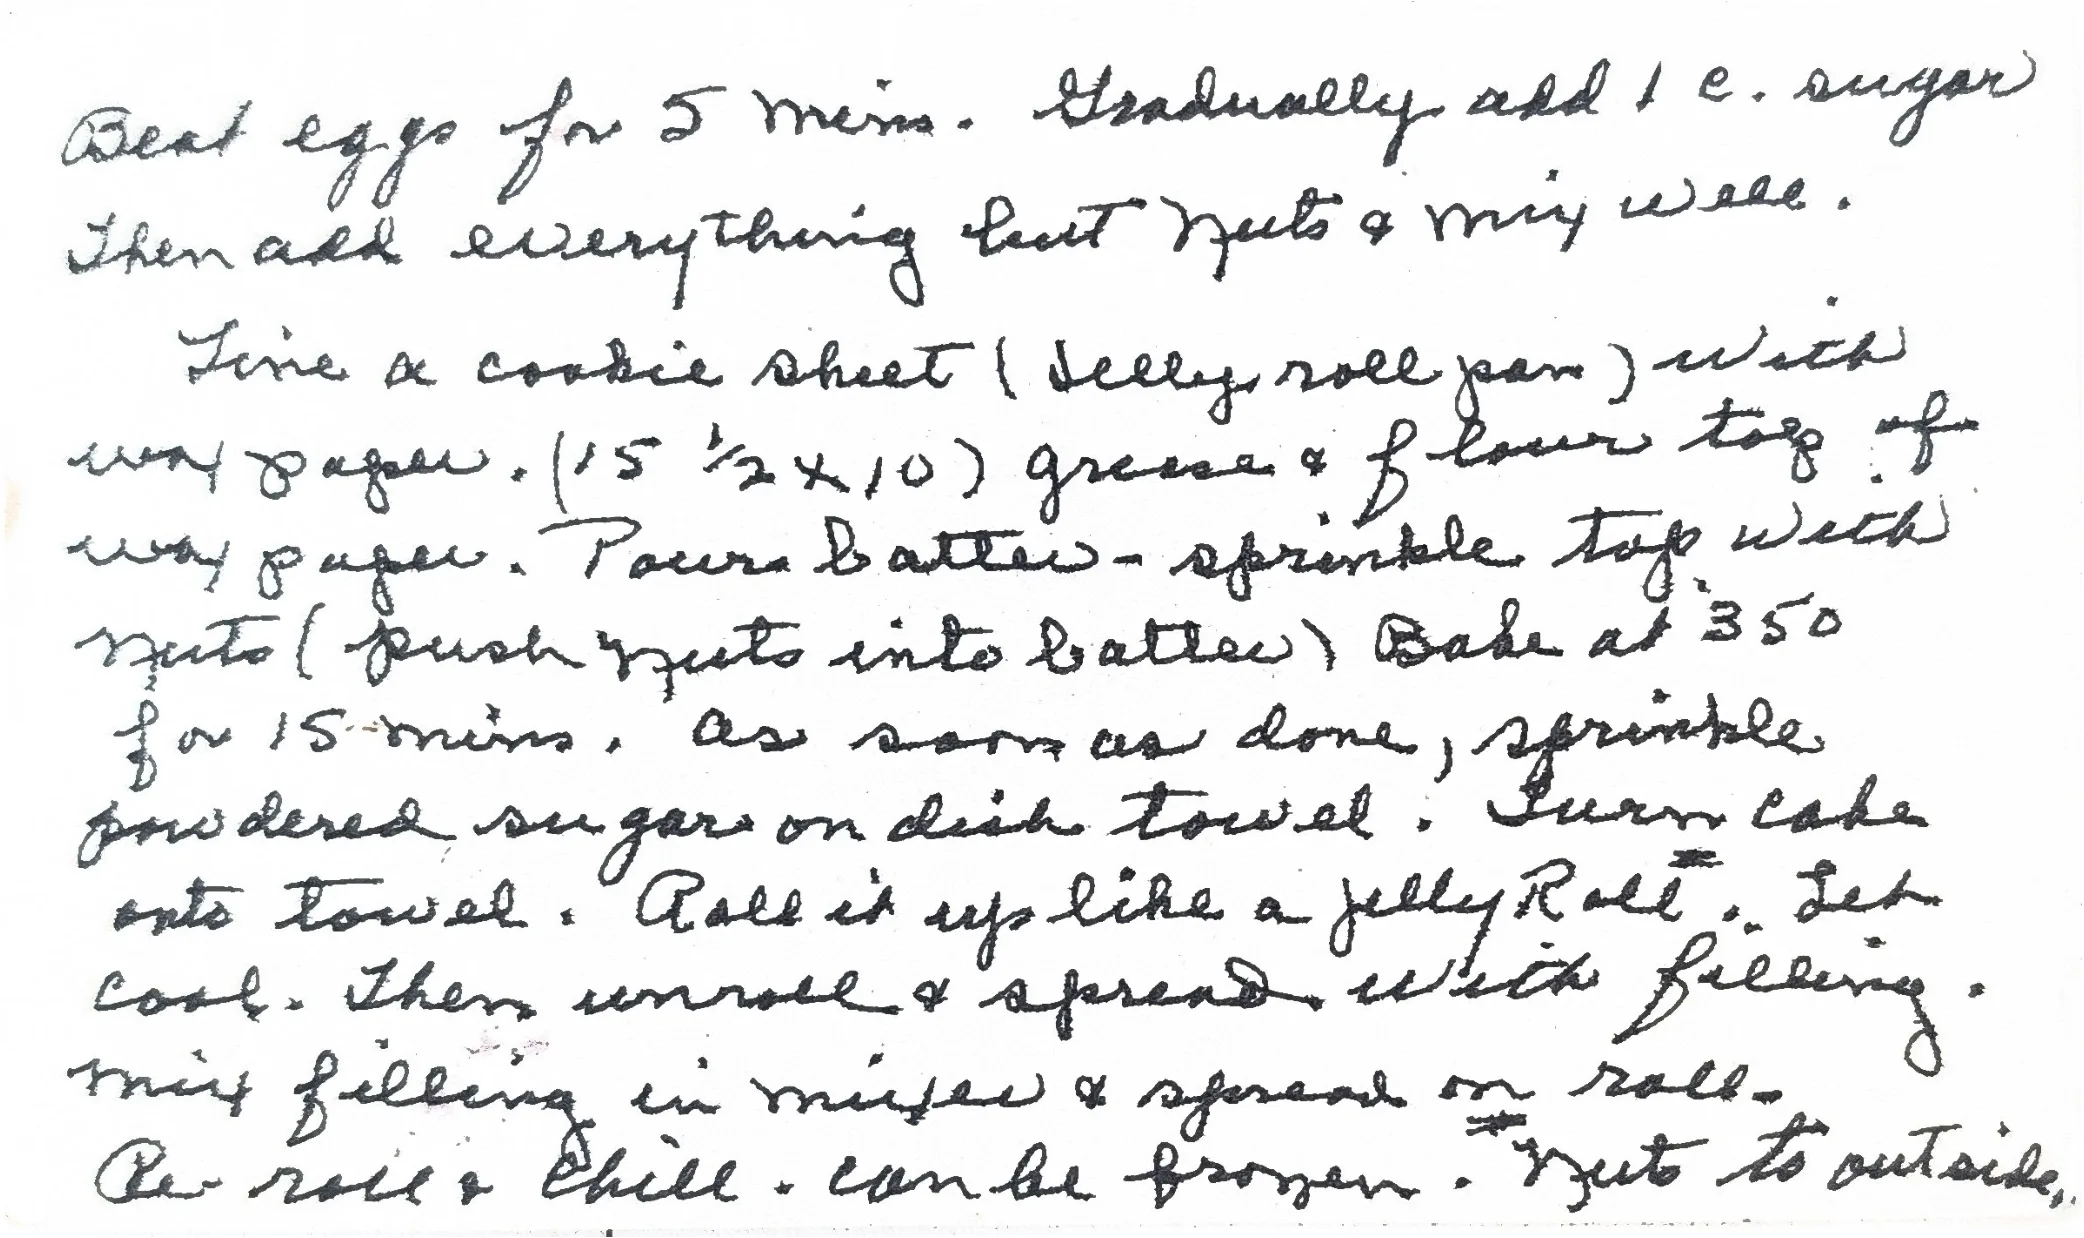 Beat eggs for 5 mins. Gradually add 1 c. sugar
Then add everything but nuts & mix well.
Line a cookie sheet (Jelly roll pan) with
wax paper. (15 1/2 x 10) grease & flour top of
wax paper. Pour batter - sprinkle top with
nuts (push nuts into batter) Bake at 350
for 15 mins. As soon as done, sprinkle
powdered sugar on dish towel. Turn cake
onto towel. Roll it up like a jelly Roll. Let
cool. Then unroll & spread with filling.
Mix filling in mixer & spread on roll.
Re-roll & chill. Can be frozen. Nuts to outside.